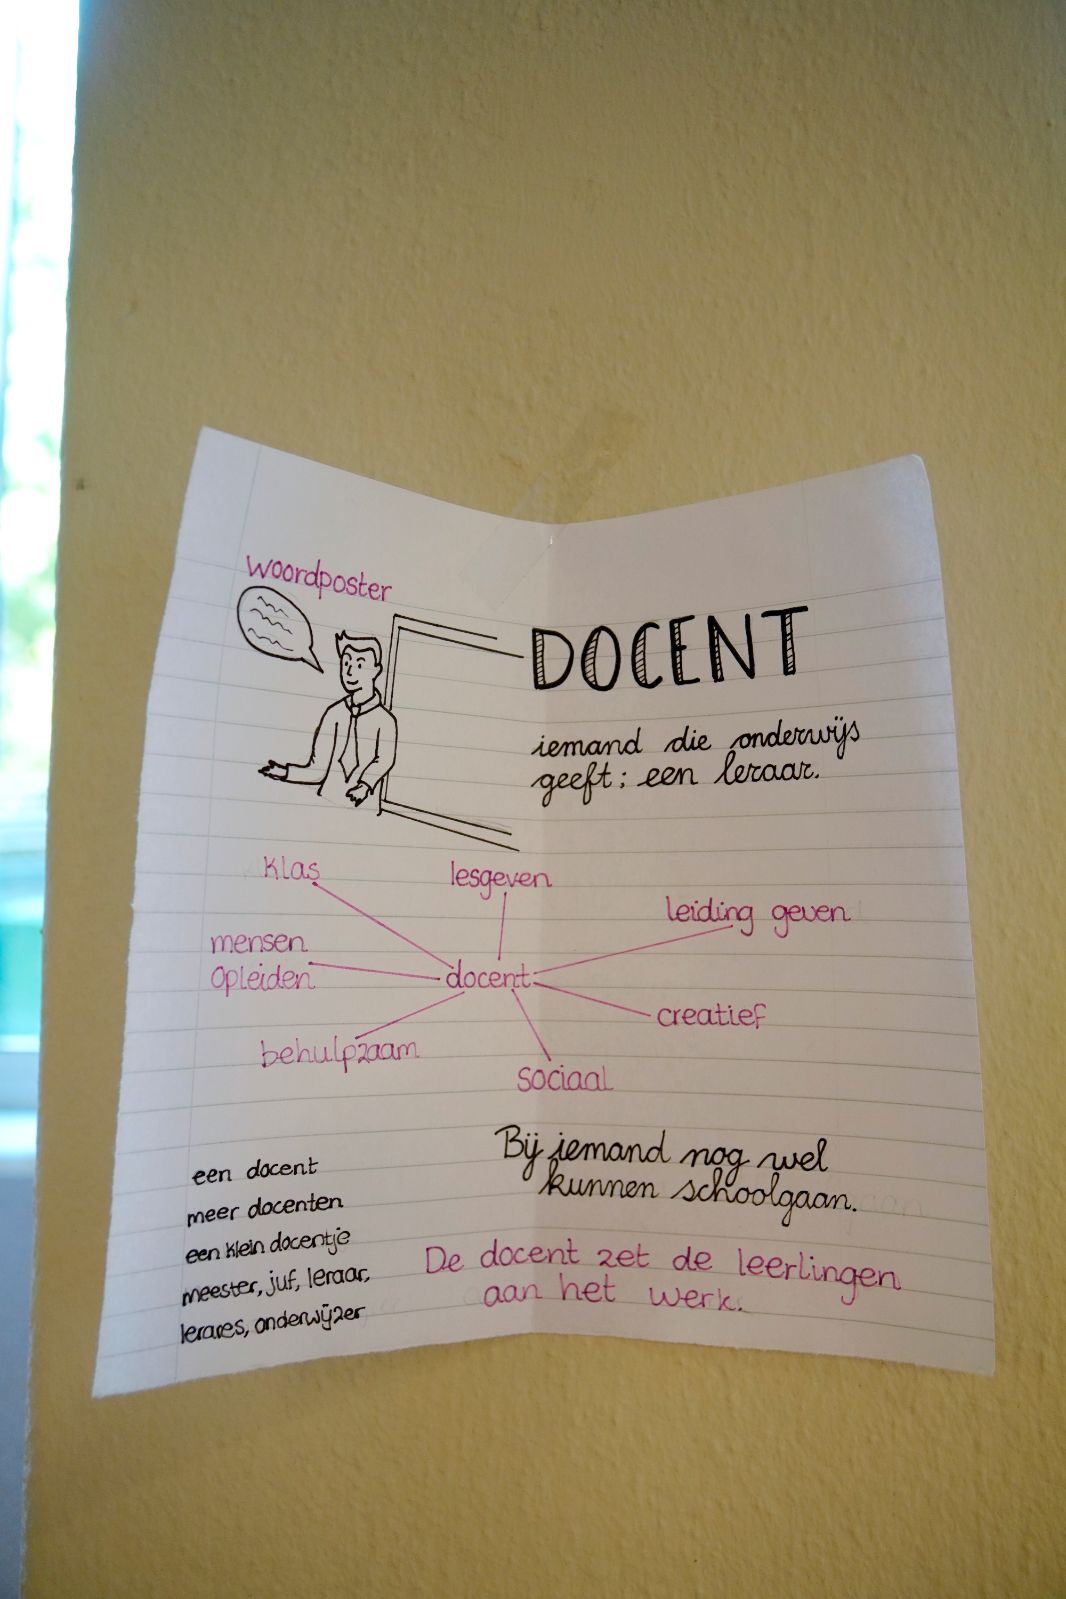 woordposter
DOCENT
iemand die onderwijs
geeft; een leraar.
klas
lesgeven
leiding geven
mensen
opleiden
docent
creatief
behulpzaam
sociaal
een docent
meer docenten
een klein docentje
meester, juf, leraar,
lerares, onderwijzer
Bij iemand nog wel
kunnen schoolgaan.
De docent zet de leerlingen
aan het werk.